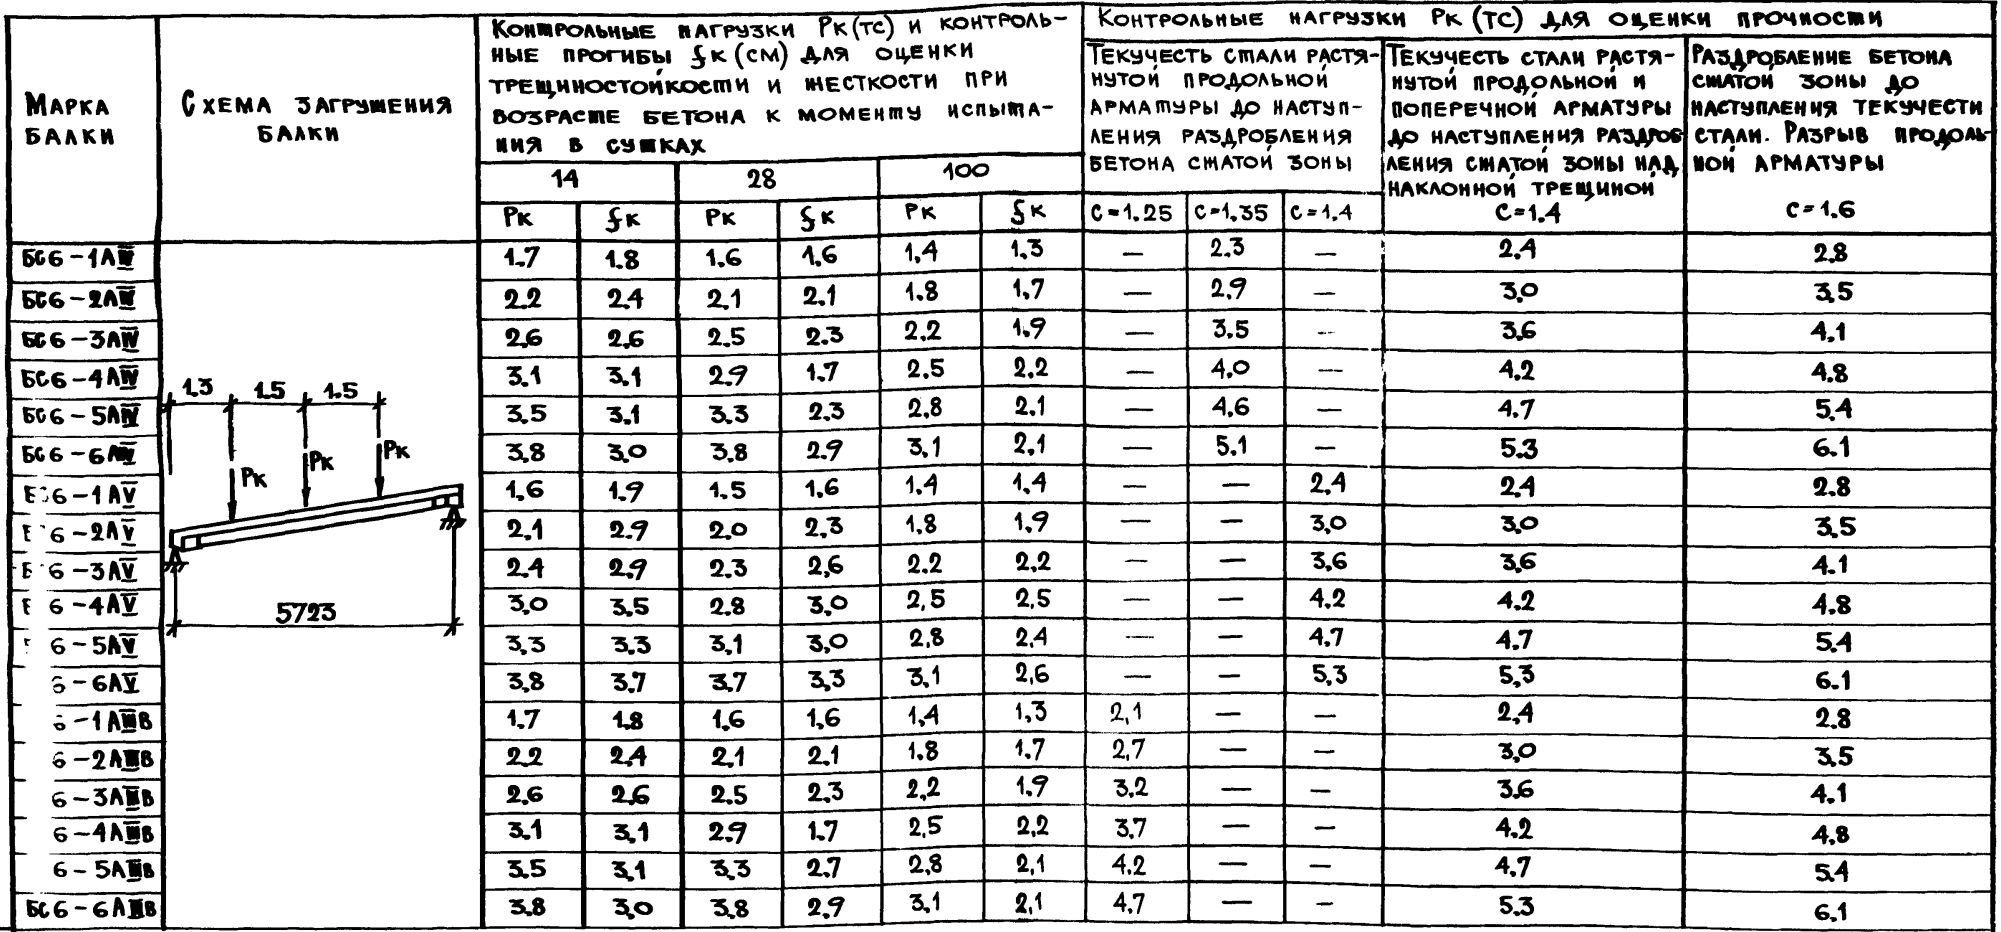 Марка балки | Схема загружения балки | Контрольные нагрузки Рк (тс) и контроль-
ные прогибы fк (см) для оценки
трещиностойкости и жесткости при
возрасте бетона к моменту испыта-
ния в сутках
14 | 28 | 100
Рк | fк | Рк | fк | Рк | fк
Контрольные нагрузки Рк (тс) для оценки прочности
Текучесть стали растя-
нутой продольной
арматуры до наступ-
ления раздробления
бетона сжатой зоны
с=1.25 | с=1.35 | с=1.4
Текучесть стали растя-
нутой продольной и
поперечной арматуры
до наступления раздроб
ления сжатой зоны над
наклонной трещиной
с=1.4
Раздробление бетона
сжатой зоны до
наступления текучести
стали. Разрыв продоль-
ной арматуры
с=1.6
БС6-1АIV | 1.7 | 1.8 | 1.6 | 1.6 | 1.4 | 1.3 | — | 2.3 | — | 2.4 | 2.8
БС6-2АIV | 2.2 | 2.4 | 2.1 | 2.1 | 1.8 | 1.7 | — | 2.9 | — | 3.0 | 3.5
БС6-3АIV | 2.6 | 2.6 | 2.5 | 2.3 | 2.2 | 1.9 | — | 3.5 | — | 3.6 | 4.1
БС6-4АIV | 3.1 | 3.1 | 2.9 | 1.7 | 2.5 | 2.2 | — | 4.0 | — | 4.2 | 4.8
БС6-5АIV | 3.5 | 3.1 | 3.3 | 2.3 | 2.8 | 2.1 | — | 4.6 | — | 4.7 | 5.4
БС6-6АIV | 3.8 | 3.0 | 3.8 | 2.9 | 3.1 | 2.1 | — | 5.1 | — | 5.3 | 6.1
6-1АV | 1.6 | 1.9 | 1.5 | 1.6 | 1.4 | 1.4 | — | — | 2.4 | 2.4 | 2.8
6-2АV | 2.1 | 2.9 | 2.0 | 2.3 | 1.8 | 1.9 | — | — | 3.0 | 3.0 | 3.5
6-3АV | 2.4 | 2.9 | 2.3 | 2.6 | 2.2 | 2.2 | — | — | 3.6 | 3.6 | 4.1
6-4АV | 3.0 | 3.5 | 2.8 | 3.0 | 2.5 | 2.5 | — | — | 4.2 | 4.2 | 4.8
6-5АV | 3.3 | 3.3 | 3.1 | 3.0 | 2.8 | 2.4 | — | — | 4.7 | 4.7 | 5.4
6-6АV | 3.8 | 3.7 | 3.7 | 3.3 | 3.1 | 2.6 | — | — | 5.3 | 5.3 | 6.1
6-1АIIIВ | 1.7 | 1.8 | 1.6 | 1.6 | 1.4 | 1.3 | 2.1 | — | — | 2.4 | 2.8
6-2АIIIВ | 2.2 | 2.4 | 2.1 | 2.1 | 1.8 | 1.7 | 2.7 | — | — | 3.0 | 3.5
6-3АIIIВ | 2.6 | 2.6 | 2.5 | 2.3 | 2.2 | 1.9 | 3.2 | — | — | 3.6 | 4.1
6-4АIIIВ | 3.1 | 3.1 | 2.9 | 1.7 | 2.5 | 2.2 | 3.7 | — | — | 4.2 | 4.8
6-5АIIIВ | 3.5 | 3.1 | 3.3 | 2.7 | 2.8 | 2.1 | 4.2 | — | — | 4.7 | 5.4
БС6-6АIIIВ | 3.8 | 3.0 | 3.8 | 2.9 | 3.1 | 2.1 | 4.7 | — | — | 5.3 | 6.1
1.3 1.5 1.5
Рк Рк Рк
5723